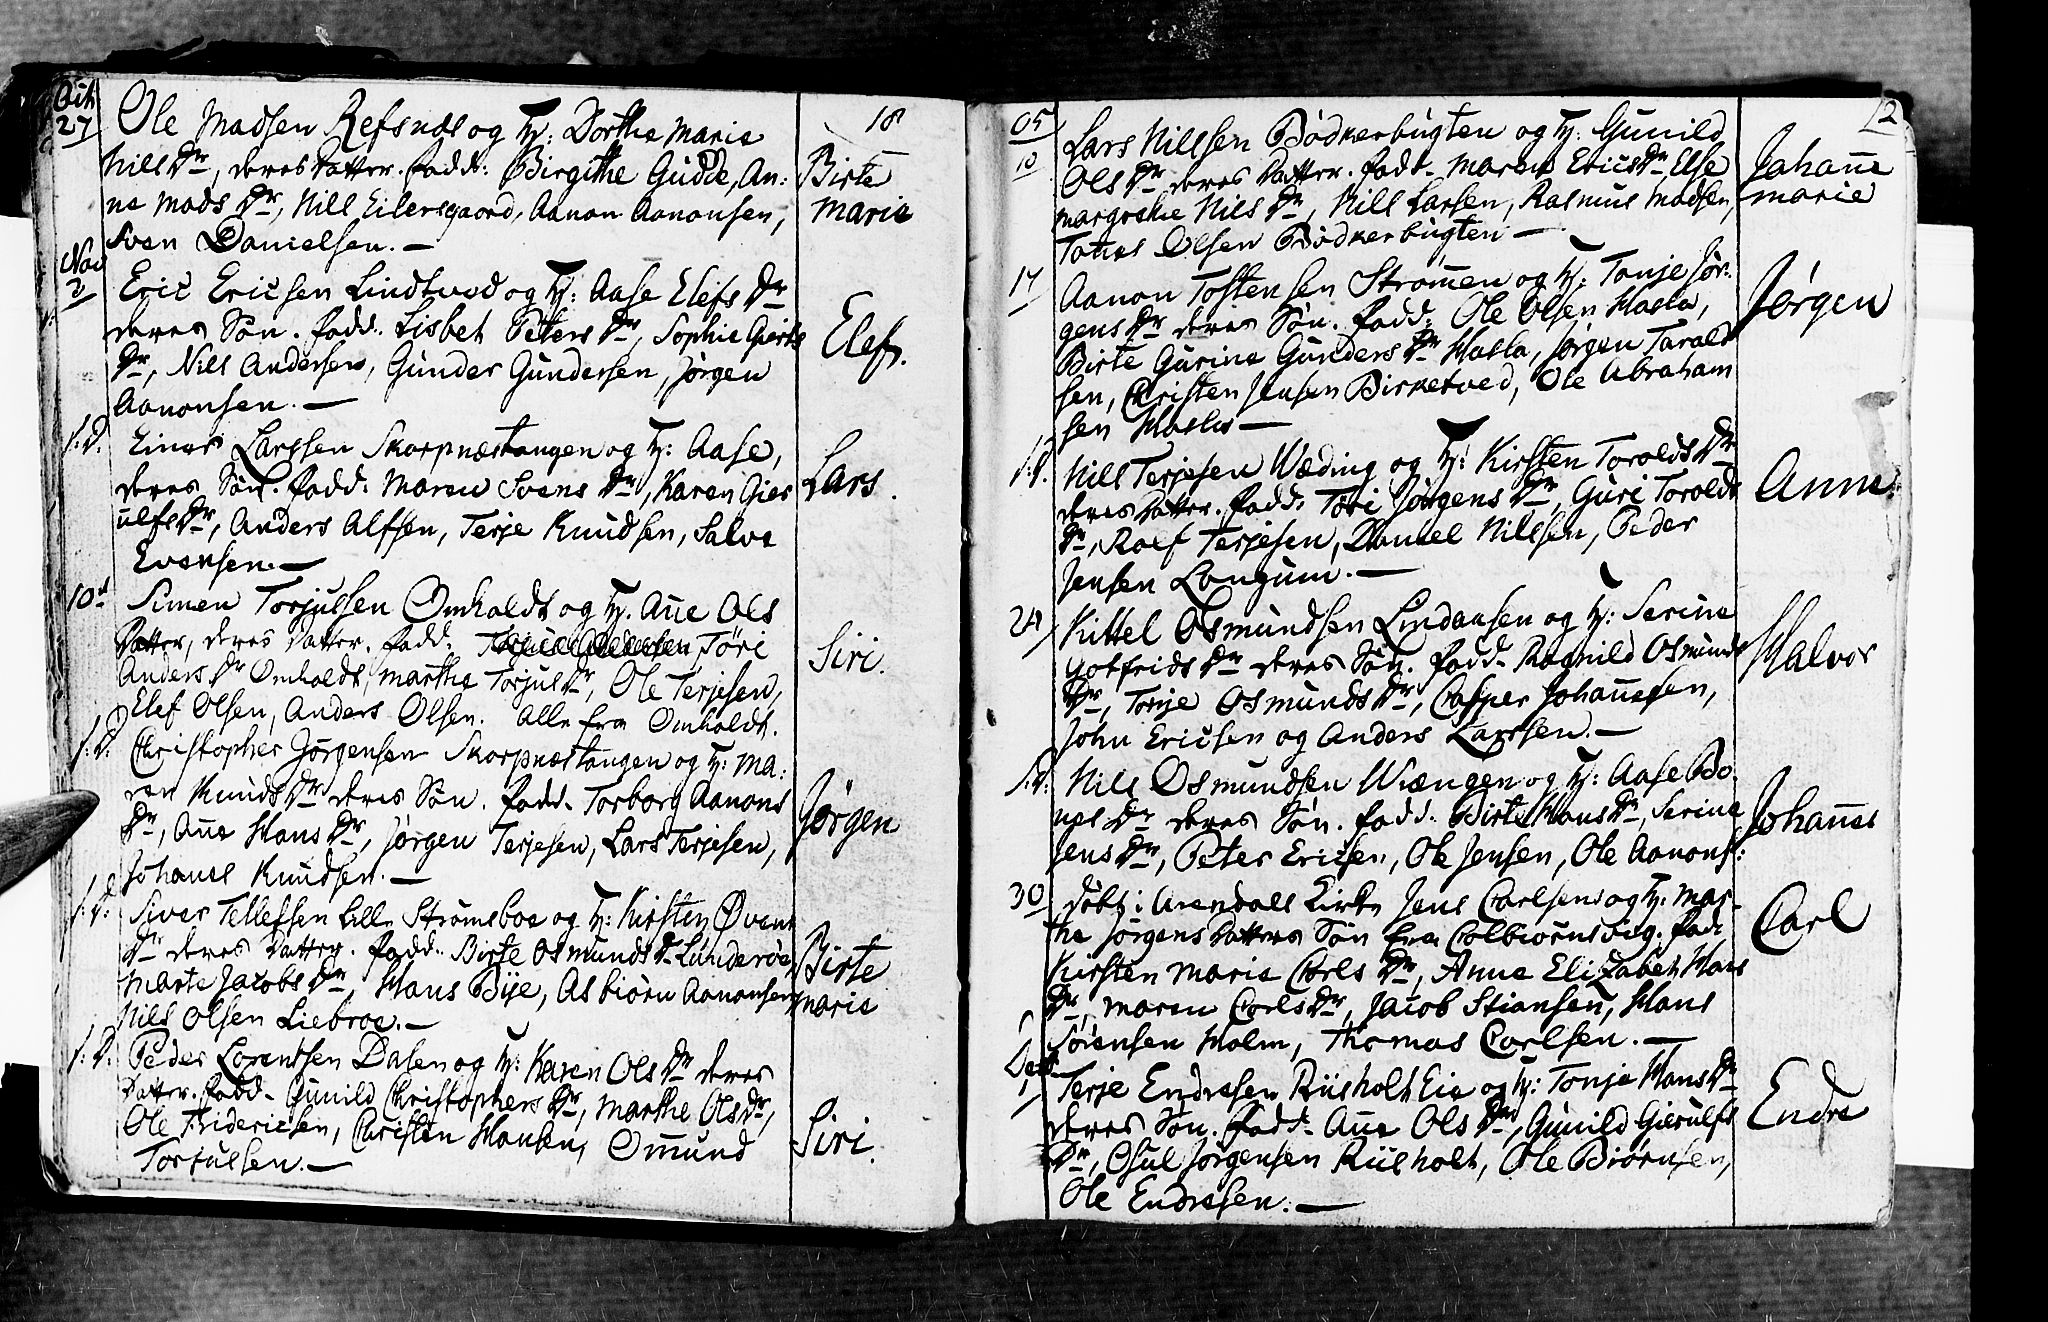 Oct
27
18
Ole Madsen Refsnæs og H: Dorthe Marie
Nills Dr, deres Datter. fadd: Birgithe Gudde, An:
ne Mads Dr, Nill Eilersgaard, Aanon Aanonsen,
Sven Danielsen. —
Birte
Marie
Nov
3
Eric Ericsen Lindtved og H: Aase Elefs Dr
deres Søn. fadd: Lisbet Peters Dr, Sophie Gierts
Dr, Nill Andersen, Gunder Gundersen, Jørgen
Aanonsen. —
Elef.
s: d.
Einer Larssen Skarpnæstangen og H: Aase,
deres Søn. fadd. Maren Svens Dr, Karen Gier
ulfs Dr, Anders Alfsen, Terje Knudsen, Salve
Evensen. —
Lars.
10d
Simen Torjulsen Omholdt og H. Añe Ols
Datter, deres Datter. fadd. Tøri
Anders Dr Omholdt, Marthe Torjuls Dr, Ole Terjesen,
Elef Olsen, Anders Olsen. Alle fra Omholdt.
Siri.
s: d.
Christopher Jørgensen Skarpnæstangen og H: Ma:
ren Knuds Dr deres Søn. fadd. Torborg Aanons
Dr, Añe Hans Dr, Jørgen Terjesen, Lars Terjesen,
Johanes Knudsen. —
Jørgen
s: d:
Siver Tellefsen Lille Strømsboe og H: Kirsten Øvens
Dr deres Datter. fadd: Birte Osmunds Dr Lunderøe,
Marte Jacobs Dr, Hans Bye, Asbiørn Aanonsen,
Nils Olsen Liebroe. —
Birte
Marie
s: d:
Peder Lorentsen Dalen og H: Karen Ols Dr deres
Datter. fadd. Gunild Christophers Dr, Marthe Ols Dr,
Ole Fridericsen, Christen Hansen, Omund
Torjulsen. —
Siri.
05
12
10
Lars Nillsen Bødkerbugten og H: Gunild
Ols Dr deres Datter. fadd. Maren Erics Dr Else
Margrethe Nils Dr, Nill Larsen, Rasmus Madsen,
Tønes Olsen Bødkerbugten —
Johañe
Marie
17
Aanon Tostensen Strømmen og H: Tonje Jør:
gens Dr deres Søn. fadd: Ole Olsen Hasla,
Birte Gurine Gunders Dr Hasla, Jørgen Tarald
sen, Christen Jensen Birketved, Ole Abraham
sen Hasla —
Jørgen
s: d.
Nill Terjesen Wæding og H: Kirsten Torolds Dr
deres Datter. fadd. Tøri Jørgens Dr, Guri Torolds
Dr, Roef Terjesen, Daniel Nillsen, Peder
Jensen Langum. —
Anne.
24
Kittel Osmundsen Lindansen og H: Serine
Gotfrids Dr deres Søn. fadd. Ragnild Osmunds
Dr, Torje Osmunds Dr, Casper Johañesen,
John Ericsen og Anders Larsen. —
Halvor
s. d:
Nill Osmundsen Wiængen og H: Aase Bo:
nes Dr deres Søn. fadd: Birte Hans Dr, Serine
Jens Dr, Peter Ericsen, Ole Jensen, Ole Aanons:
Johañes
30
døbt i Arendals Kirke Jens Carlsens og H: Mar-
the Jørgens Datters Søn fra Colbiørnsvig. fad:
Kirsten Marie Carls Dr, Anne Elizabet Hans
Dr, Maren Carls Dr, Jacob Stiansen, Hans
Sørensen Holm, Thomas Carlsen. —
Carl
Decb
1
Terje Endresen Riisholt Eie og H: Tonje Hans Dr
deres Søn. fadd. Añe Ols Dr, Gunild Gierulfs
Dr, Osul Jørgensen Riisholt, Ole Biørnsen,
Ole Endresen. —
Endre